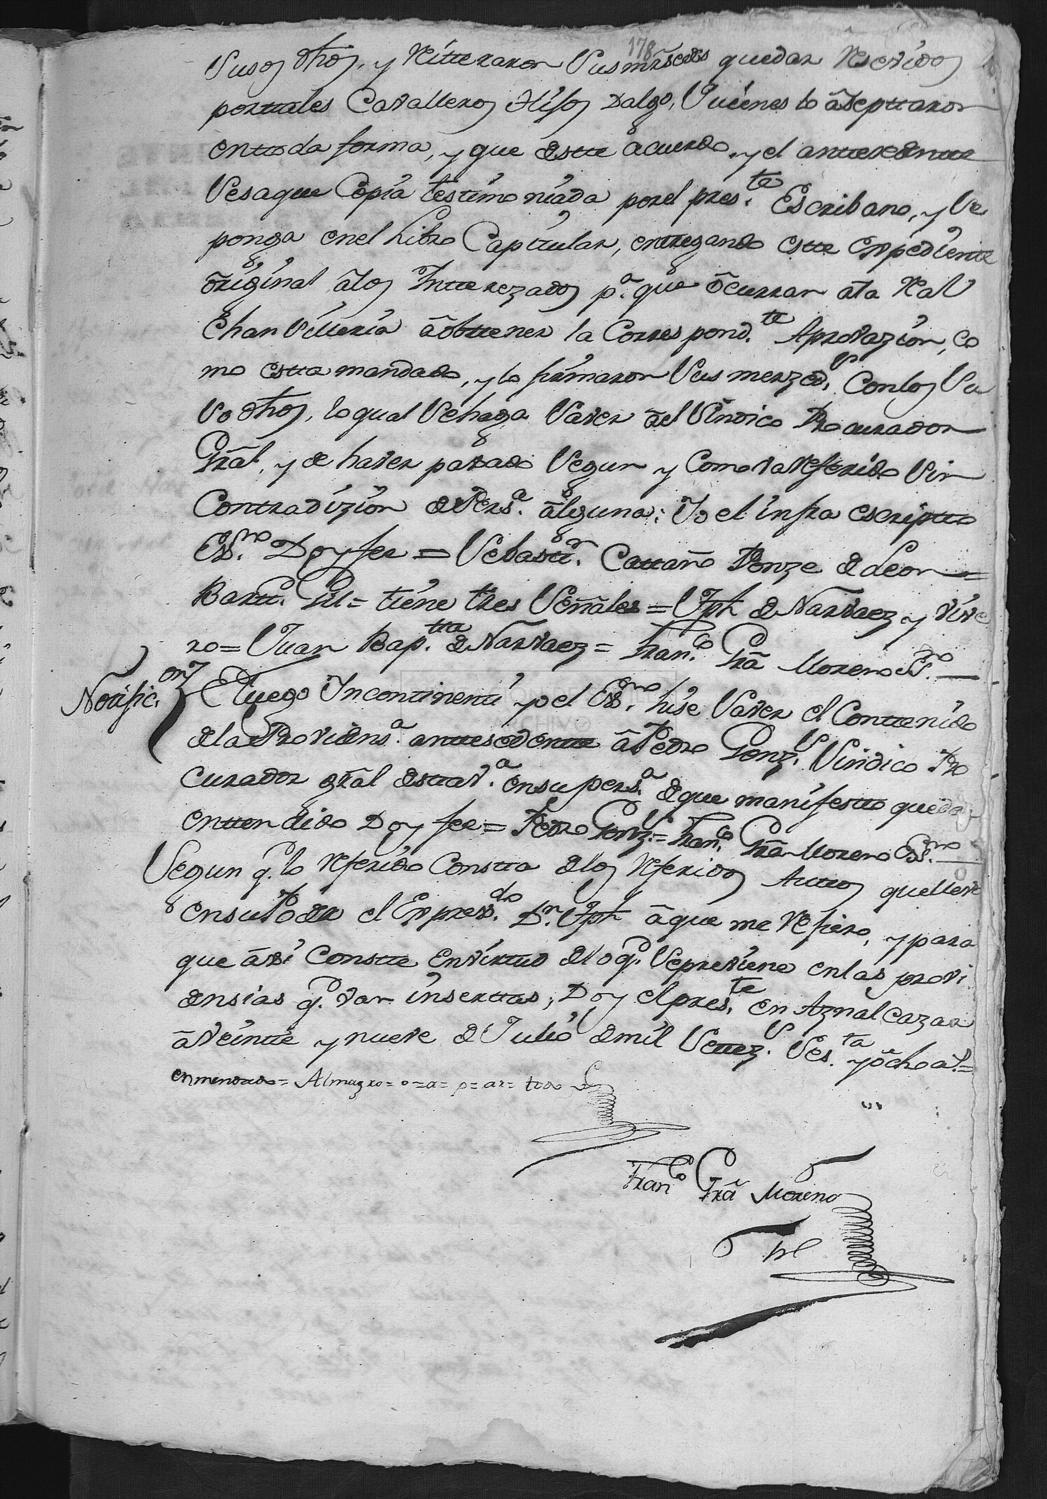 178
Susos dhos, y Reitteraron Sus mrsedes quedar Resevidos
porttales Cavalleros Hijos Dalgo, Quienes lo aseptaron
entoda forma, y que estte acuerdo, y el antteredentte
Sesaque Copia testimoniada porel pres.te Escribano, y Se
ponga enel Libro Capitular, entregando estte Expedientte
original âlos Intterezados p.a que ôcurran âla Real
Chansilleria âobttener la Correspond.te Aprovazion, co
mo estta mandado, y lo firmaron Sus merzeds, Conlos Su
so dhos, lo qual Sehaga Saver âel Sindico Procurador
Gral, y de haver pasado Segun y Como va Referido Sin
Contradizion de Pers.a alguna: Yo el infra escriptto
Es.no Doy fee = Sebasttn. Cattaño Ponze de Leon =
Bartt.e Gil = tiene tres Señales = Jph de Narvaez y Vive
ro = Juan Bap.tta de Narvaez = Fran.co Gra Moreno Es.no
Notific.on
E luego Incontinenti yo el Es.no hise Saver el Contenido
dela Providens.a anttesedentte â Pedro Gonz.s Sindico Pro
curador gral destta V.a ensu pers.a de que manifestto queda
enttendido Doy fee = Pedro Gonz.s = Fran.co Gra Moreno Es.no
Segun q.e lo Referido Constta delos Referidos Auttos quelleve
ensu Poder el Expres.do Dn. Jph âque me Refiero, y para
que âsi Constte En virtud delo q.e Sepreviene enlas provi
densias q.e van inserttas; Doy el pres.te en Aznalcazar
âVeintte y nueve de Julio de mil Settez.s Ses.ta y ôcho a.s =
enmendado = Almagro = o = a = p = ar = tdo
Fran.co Gra Moreno